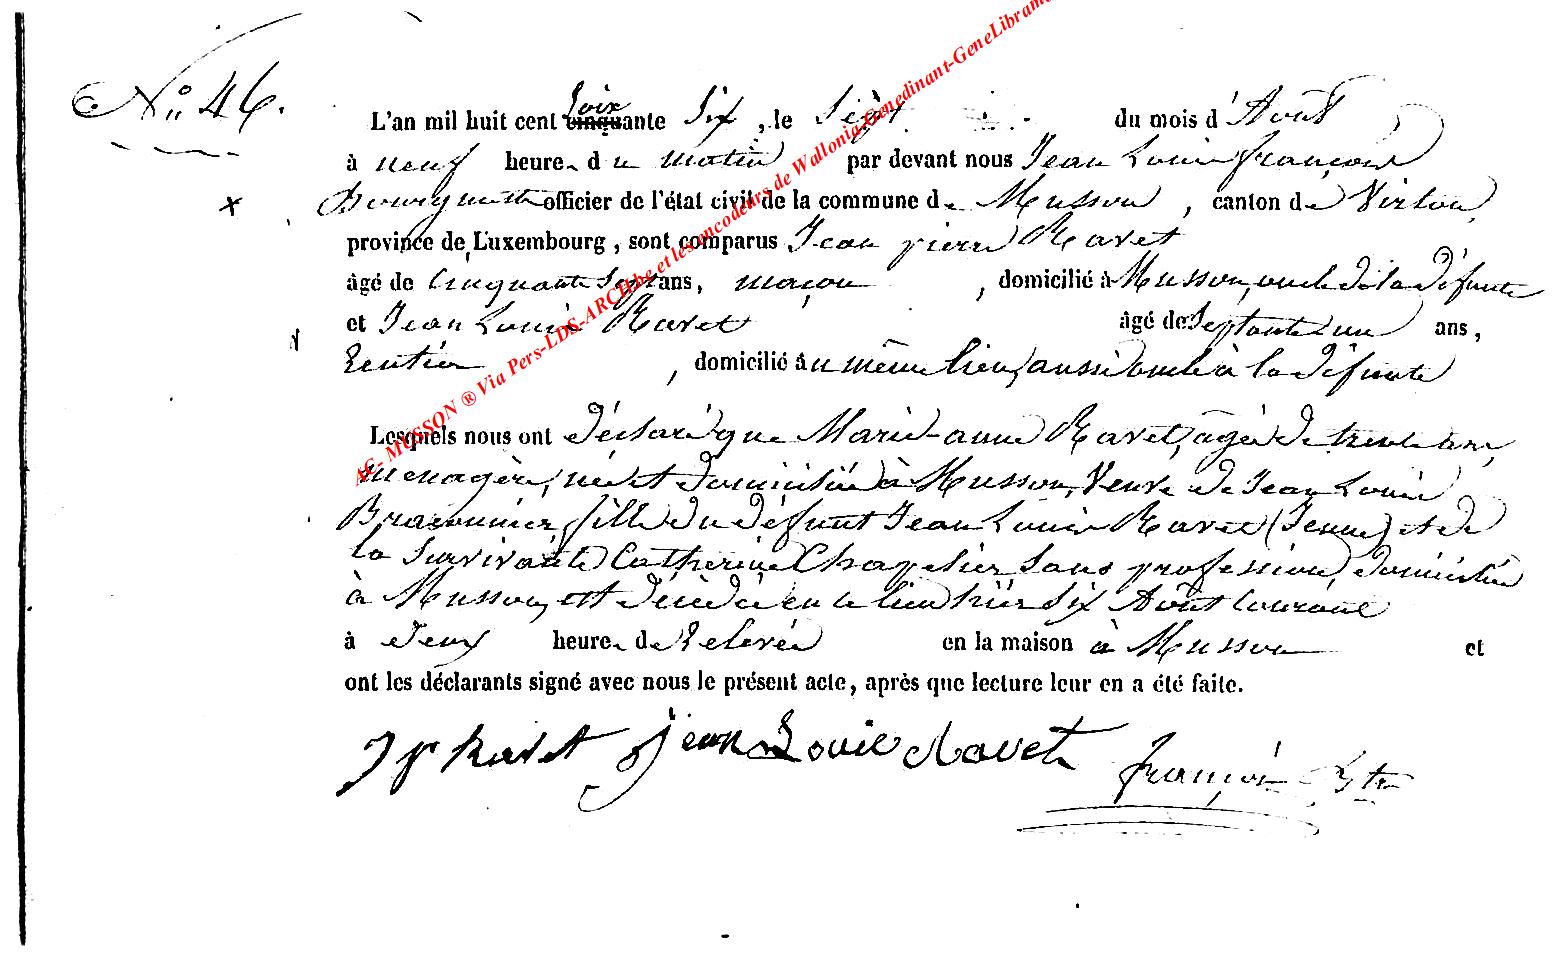 N° 46.
L'an mil huit cent cinquante Soix Six, le Sept du mois d'Août
à neuf heure. du matin par devant nous Jean Louis françois
officier de l'état civil de la commune de Musson, canton de Virton,
province de Luxembourg, sont comparus Jean pierre Ravet
âgé de Cinquante Sept ans, maçon, domicilié à Musson, oncle de la défunte
et Jean Louis Ravet âgé de Septante un ans,
Rentier, domicilié au même lieu, aussi oncle à la défunte
Lesquels nous ont déclaré que Marie-anne Ravet, agée de trente ans,
menagère, née et domiciliée à Musson, Veuve de Jean Louis
Braconnier, fille du défunt Jean Louis Ravet (Jeune) et de
la Survivante Catherine Chapelier Sans profession, domiciliée
à Musson, est décédée en ce lieu hier Six Août Courant
à deux heure. de Relevée en la maison à Musson et
ont les déclarants signé avec nous le présent acte, après que lecture leur en a été faite.
J p Ravet jean Louis Ravet françois
AC- MUSSON ® Via Pers-LDS-ARCH.be et les encodeurs de Wallonia-Genedinant-GeneLibrame